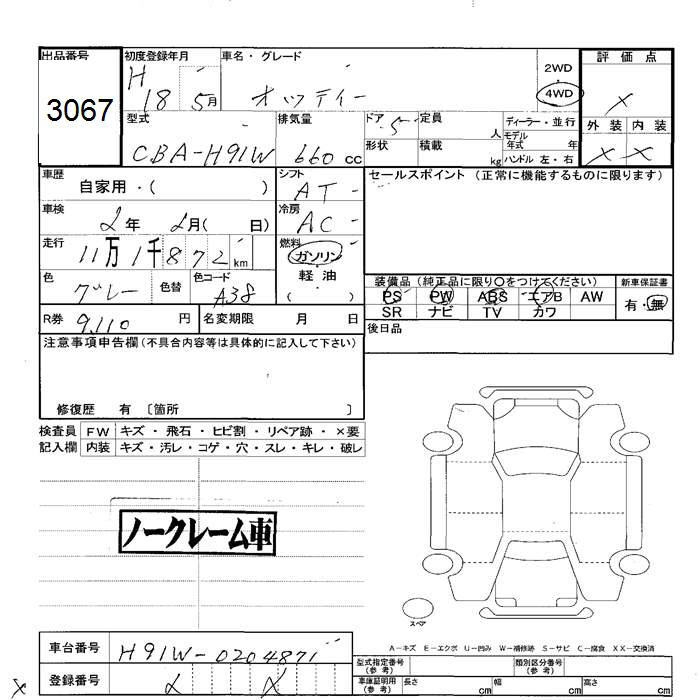 出品番号 初度登録年月 車名・グレード 2WD 評価点
3067 H 18 5月 オッティー 4WD ×
型式 排気量 ドア 5 定員 人 ディーラー・並行 外装 内装
CBA-H91W 660cc 形状 積載 kg モデル年式 年 × ×
ハンドル 左・右
車歴 自家用・( ) シフト AT セールスポイント (正常に機能するものに限ります)
車検 2年 2月( 日) 冷房 AC
走行 11万1千872km 燃料 ガソリン
軽油
色 グレー 色替 色コード A38 ( ) 装備品(純正品に限り○をつけてください) 新車保証書
PS PW ABS エアB AW 有・無
R券 9,110円 名変期限 月 日 SR ナビ TV カワ
後日品
注意事項申告欄(不具合内容等は具体的に記入して下さい)
修復歴 有 〔箇所 〕
検査員 FW キズ・飛石・ヒビ割・リペア跡・×要
記入欄 内装 キズ・汚レ・コゲ・穴・スレ・キレ・破レ
ノークレーム車
スペア
A-キズ E-エクボ U-凹み W-補修跡 S-サビ C-腐食 XX-交換済
車台番号 H91W-0204871 型式指定番号(参考) 類別区分番号(参考)
登録番号 車庫証明用(参考) 長さ cm 幅 cm 高さ cm
×